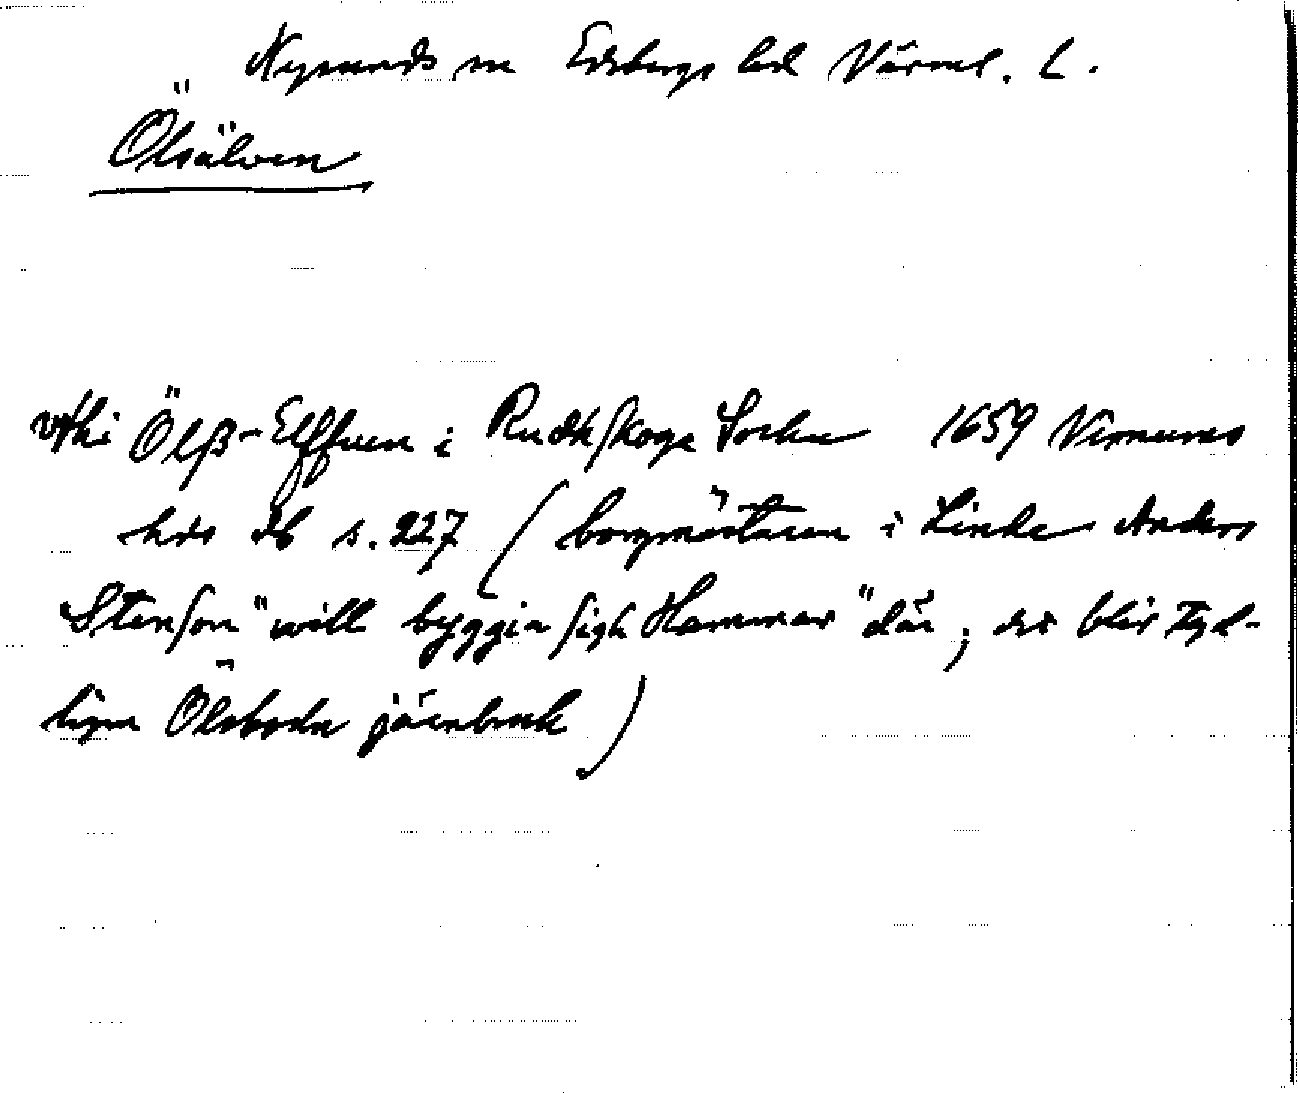 Nysunds sn Edsbergs hd Värml. L.
Ölsälven
vthi Ölß-Elffuen i Rudhskoga Sochn 1659 Vermunds
hds db s. 227 (borgmästaren i Linde Anders
Stenson "will byggia sigh Hammar" där, det blir tyd-
ligen Ölsboda järnbruk)